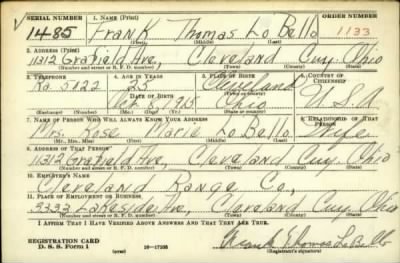 SERIAL NUMBER 1. NAME (Print) ORDER NUMBER
1485 Frank Thomas Lo Bello 1133
(First) (Middle) (Last)
2. ADDRESS (Print)
11312 Ave, Cleveland Cuy. Ohio
(Number and street or R. F. D. number) (Town) (County) (State)
3. TELEPHONE 4. AGE IN YEARS 5. PLACE OF BIRTH 6. COUNTRY OF CITIZENSHIP
Ra. 5122 25 Cleveland
DATE OF BIRTH
Oct. 8, 1915 Ohio U.S.A
(Exchange) (Number) (Mo.) (Day) (Yr.) (State or country)
7. NAME OF PERSON WHO WILL ALWAYS KNOW YOUR ADDRESS 8. RELATIONSHIP OF THAT PERSON
Mrs. Rose Marie Lo Bello Wife
(Mr., Mrs., Miss) (First) (Middle) (Last)
9. ADDRESS OF THAT PERSON
11312 Ave, Cleveland Cuy. Ohio
(Number and street or R. F. D. number) (Town) (County) (State)
10. EMPLOYER'S NAME
Cleveland Range Co,
11. PLACE OF EMPLOYMENT OR BUSINESS
5332 Lakeside Ave, Cleveland Cuy. Ohio
(Number and street or R. F. D. number) (Town) (County) (State)
I AFFIRM THAT I HAVE VERIFIED ABOVE ANSWERS AND THAT THEY ARE TRUE.
REGISTRATION CARD
D. S. S. Form 1 (over) 16—17105 Frank Thomas Lo Bello
(Registrant's signature)